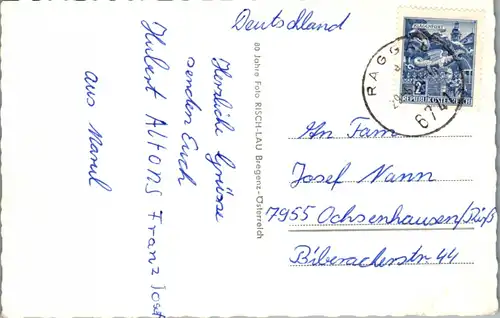 Deutschland
Herzliche Grüsse
senden Euch
Hubert Alfons Franz Josef
aus Marul
80 Jahre Foto RISCH-LAU Bregenz-Österreich
KLAGENFURT
2
REPUBLIK ÖSTERREICH
RAGG
674
An Fam
Josef Nann
7955 Ochsenhausen/Riß
Biberacherstr 44